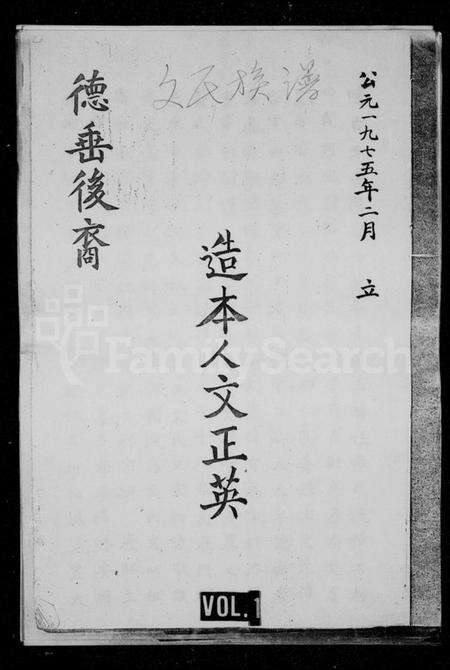 文氏族谱
公元一九七五年二月 立
造本人文正英
德垂後裔
FamilySearch
VOL. 1